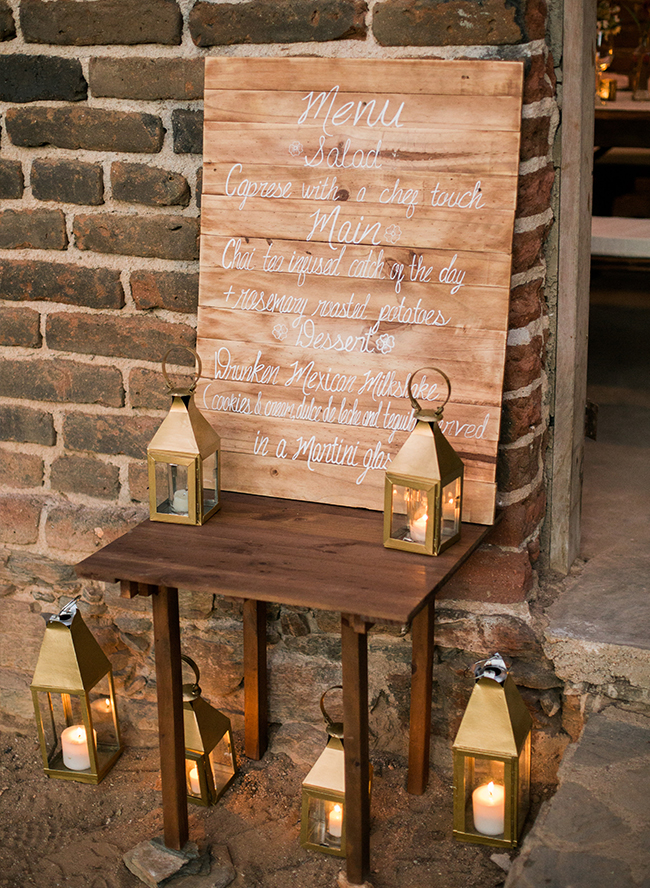 Menu
Salad
Caprese with a chef touch
Main
Chai tea infused catch of the day
+ rosemary roasted potatoes
Dessert
Drunken Mexican Milkshake
(Cookies & cream, dulce de leche and tequila served
in a Martini glass